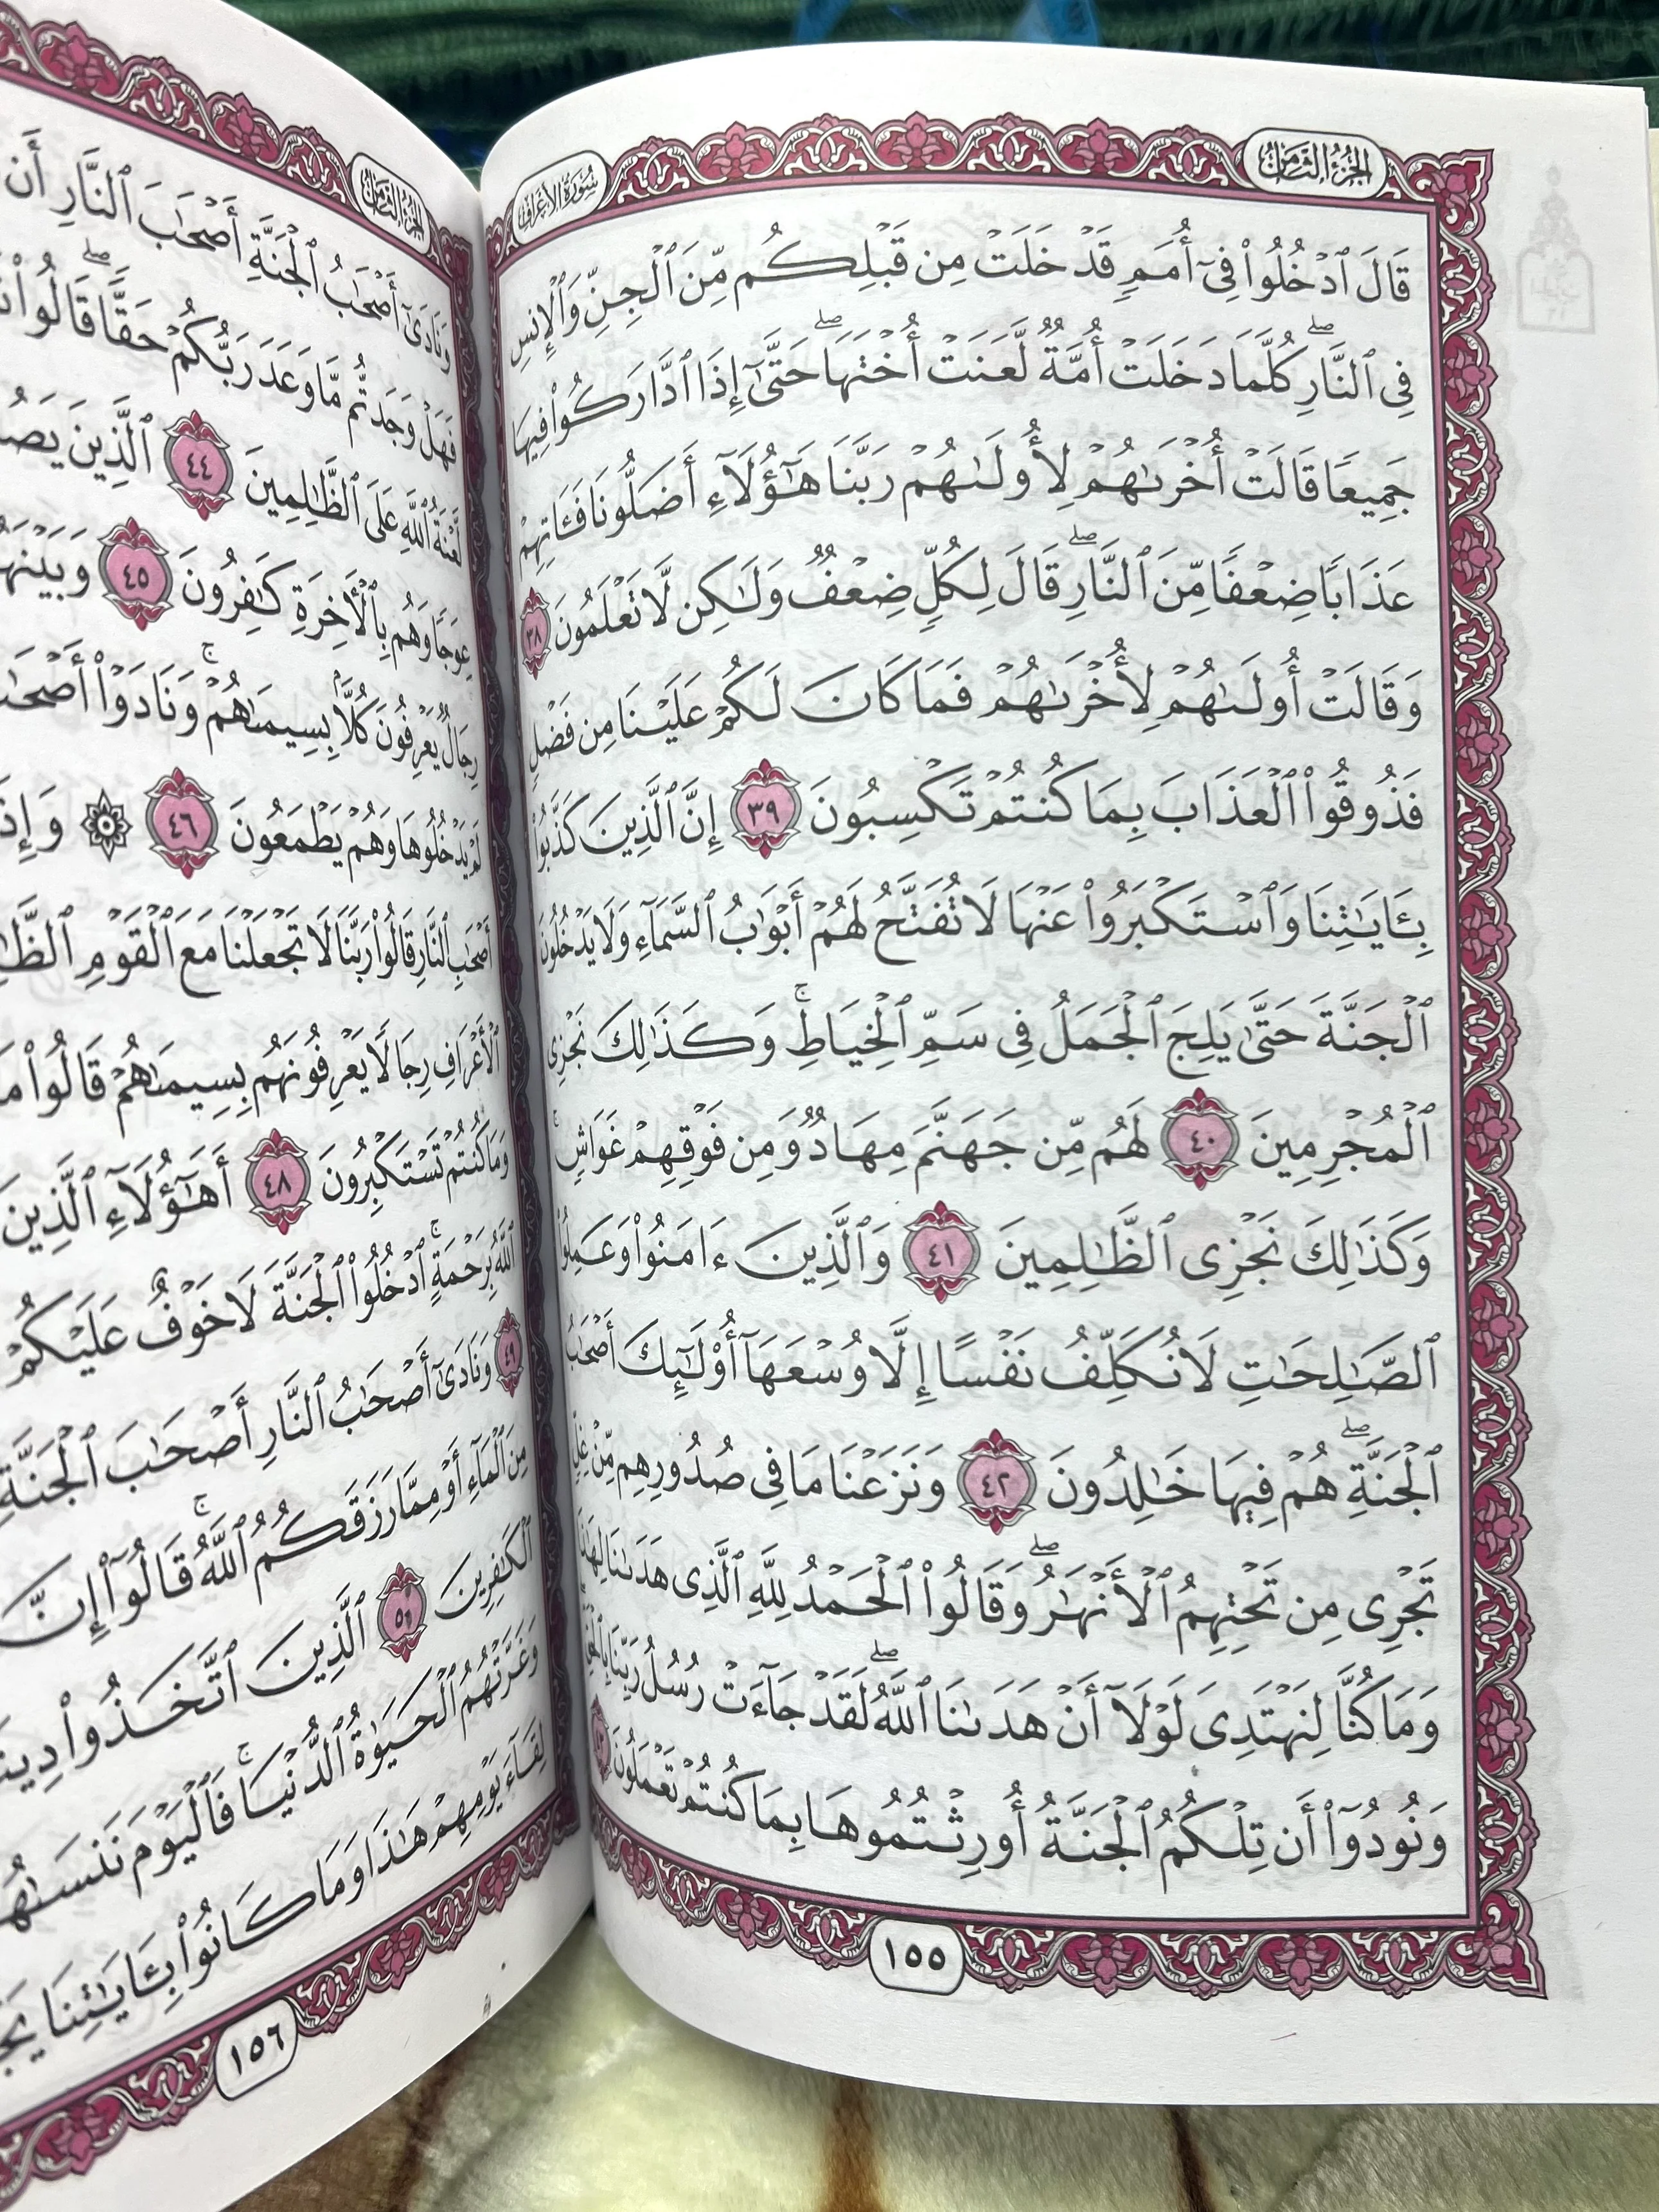 الجزء الثامن
سورة الأعراف
قَالَ ٱدْخُلُوا۟ فِىٓ أُمَمٍ قَدْ خَلَتْ مِن قَبْلِكُم مِّنَ ٱلْجِنِّ وَٱلْإِنسِ
فِى ٱلنَّارِ ۖ كُلَّمَا دَخَلَتْ أُمَّةٌ لَّعَنَتْ أُخْتَهَا ۖ حَتَّىٰٓ إِذَا ٱدَّارَكُوا۟ فِيهَا
جَمِيعًا قَالَتْ أُخْرَىٰهُمْ لِأُولَىٰهُمْ رَبَّنَا هَٰٓؤُلَآءِ أَضَلُّونَا فَـَٔاتِهِمْ
عَذَابًا ضِعْفًا مِّنَ ٱلنَّارِ ۖ قَالَ لِكُلٍّ ضِعْفٌ وَلَٰكِن لَّا تَعْلَمُونَ ٣٨
وَقَالَتْ أُولَىٰهُمْ لِأُخْرَىٰهُمْ فَمَا كَانَ لَكُمْ عَلَيْنَا مِن فَضْلٍ
فَذُوقُوا۟ ٱلْعَذَابَ بِمَا كُنتُمْ تَكْسِبُونَ ٣٩ إِنَّ ٱلَّذِينَ كَذَّبُوا۟
بِـَٔايَٰتِنَا وَٱسْتَكْبَرُوا۟ عَنْهَا لَا تُفَتَّحُ لَهُمْ أَبْوَٰبُ ٱلسَّمَآءِ وَلَا يَدْخُلُونَ
ٱلْجَنَّةَ حَتَّىٰ يَلِجَ ٱلْجَمَلُ فِى سَمِّ ٱلْخِيَاطِ ۚ وَكَذَٰلِكَ نَجْزِى
ٱلْمُجْرِمِينَ ٤٠ لَهُم مِّن جَهَنَّمَ مِهَادٌ وَمِن فَوْقِهِمْ غَوَاشٍ ۚ
وَكَذَٰلِكَ نَجْزِى ٱلظَّٰلِمِينَ ٤١ وَٱلَّذِينَ ءَامَنُوا۟ وَعَمِلُوا۟
ٱلصَّٰلِحَٰتِ لَا نُكَلِّفُ نَفْسًا إِلَّا وُسْعَهَآ أُو۟لَٰٓئِكَ أَصْحَٰبُ
ٱلْجَنَّةِ ۖ هُمْ فِيهَا خَٰلِدُونَ ٤٢ وَنَزَعْنَا مَا فِى صُدُورِهِم مِّنْ غِلٍّ
تَجْرِى مِن تَحْتِهِمُ ٱلْأَنْهَٰرُ ۖ وَقَالُوا۟ ٱلْحَمْدُ لِلَّهِ ٱلَّذِى هَدَىٰنَا لِهَٰذَا
وَمَا كُنَّا لِنَهْتَدِىَ لَوْلَآ أَنْ هَدَىٰنَا ٱللَّهُ ۖ لَقَدْ جَآءَتْ رُسُلُ رَبِّنَا بِٱلْحَقِّ ۖ
وَنُودُوٓا۟ أَن تِلْكُمُ ٱلْجَنَّةُ أُورِثْتُمُوهَا بِمَا كُنتُمْ تَعْمَلُونَ ٤٣
١٥٥
الجزء الثامن
وَنَادَىٰٓ أَصْحَٰبُ ٱلْجَنَّةِ أَصْحَٰبَ ٱلنَّارِ أَن
فَهَلْ وَجَدتُّم مَّا وَعَدَ رَبُّكُمْ حَقًّا ۖ قَالُوا۟
لَّعْنَةُ ٱللَّهِ عَلَى ٱلظَّٰلِمِينَ ٤٤ ٱلَّذِينَ
عِوَجًا وَهُم بِٱلْـَٔاخِرَةِ كَٰفِرُونَ ٤٥
رِجَالٌ يَعْرِفُونَ كُلًّۢا بِسِيمَىٰهُمْ ۚ وَنَادَوْا۟
لَمْ يَدْخُلُوهَا وَهُمْ يَطْمَعُونَ ٤٦ ۞
أَصْحَٰبِ ٱلنَّارِ قَالُوا۟ رَبَّنَا لَا تَجْعَلْنَا مَعَ ٱلْقَوْمِ
ٱلْأَعْرَافِ رِجَالًا يَعْرِفُونَهُم بِسِيمَىٰهُمْ قَالُوا۟
وَمَا كُنتُمْ تَسْتَكْبِرُونَ ٤٨ أَهَٰٓؤُلَآءِ ٱلَّذِينَ
ٱللَّهُ بِرَحْمَةٍ ۚ ٱدْخُلُوا۟ ٱلْجَنَّةَ لَا خَوْفٌ عَلَيْكُمْ
٤٩ وَنَادَىٰٓ أَصْحَٰبُ ٱلنَّارِ أَصْحَٰبَ ٱلْجَنَّةِ
مِنَ ٱلْمَآءِ أَوْ مِمَّا رَزَقَكُمُ ٱللَّهُ ۚ قَالُوٓا۟ إِنَّ
ٱلْكَٰفِرِينَ ٥٠ ٱلَّذِينَ ٱتَّخَذُوا۟
وَغَرَّتْهُمُ ٱلْحَيَوٰةُ ٱلدُّنْيَا ۚ فَٱلْيَوْمَ نَنسَىٰهُمْ
لِقَآءَ يَوْمِهِمْ هَٰذَا وَمَا كَانُوا۟ بِـَٔايَٰتِنَا
١٥٦